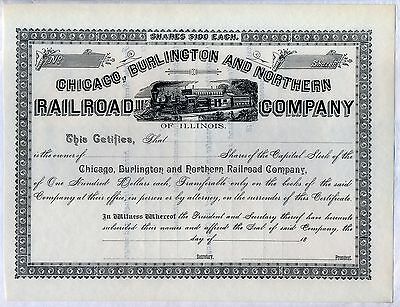 SHARES $100 EACH.
No
Shares
CHICAGO, BURLINGTON AND NORTHERN
RAILROAD COMPANY
OF ILLINOIS.
This Certifies, That
is the owner of Shares of the Capital Stock of the
Chicago, Burlington and Northern Railroad Company,
of One Hundred Dollars each, Transferable only on the books of the said
Company at their office, in person or by attorney, on the surrender of this Certificate.
In Witness Whereof the President and Secretary thereof have hereunto
subscribed their names and affixed the Seal of said Company, the
day of 18
Secretary. President.